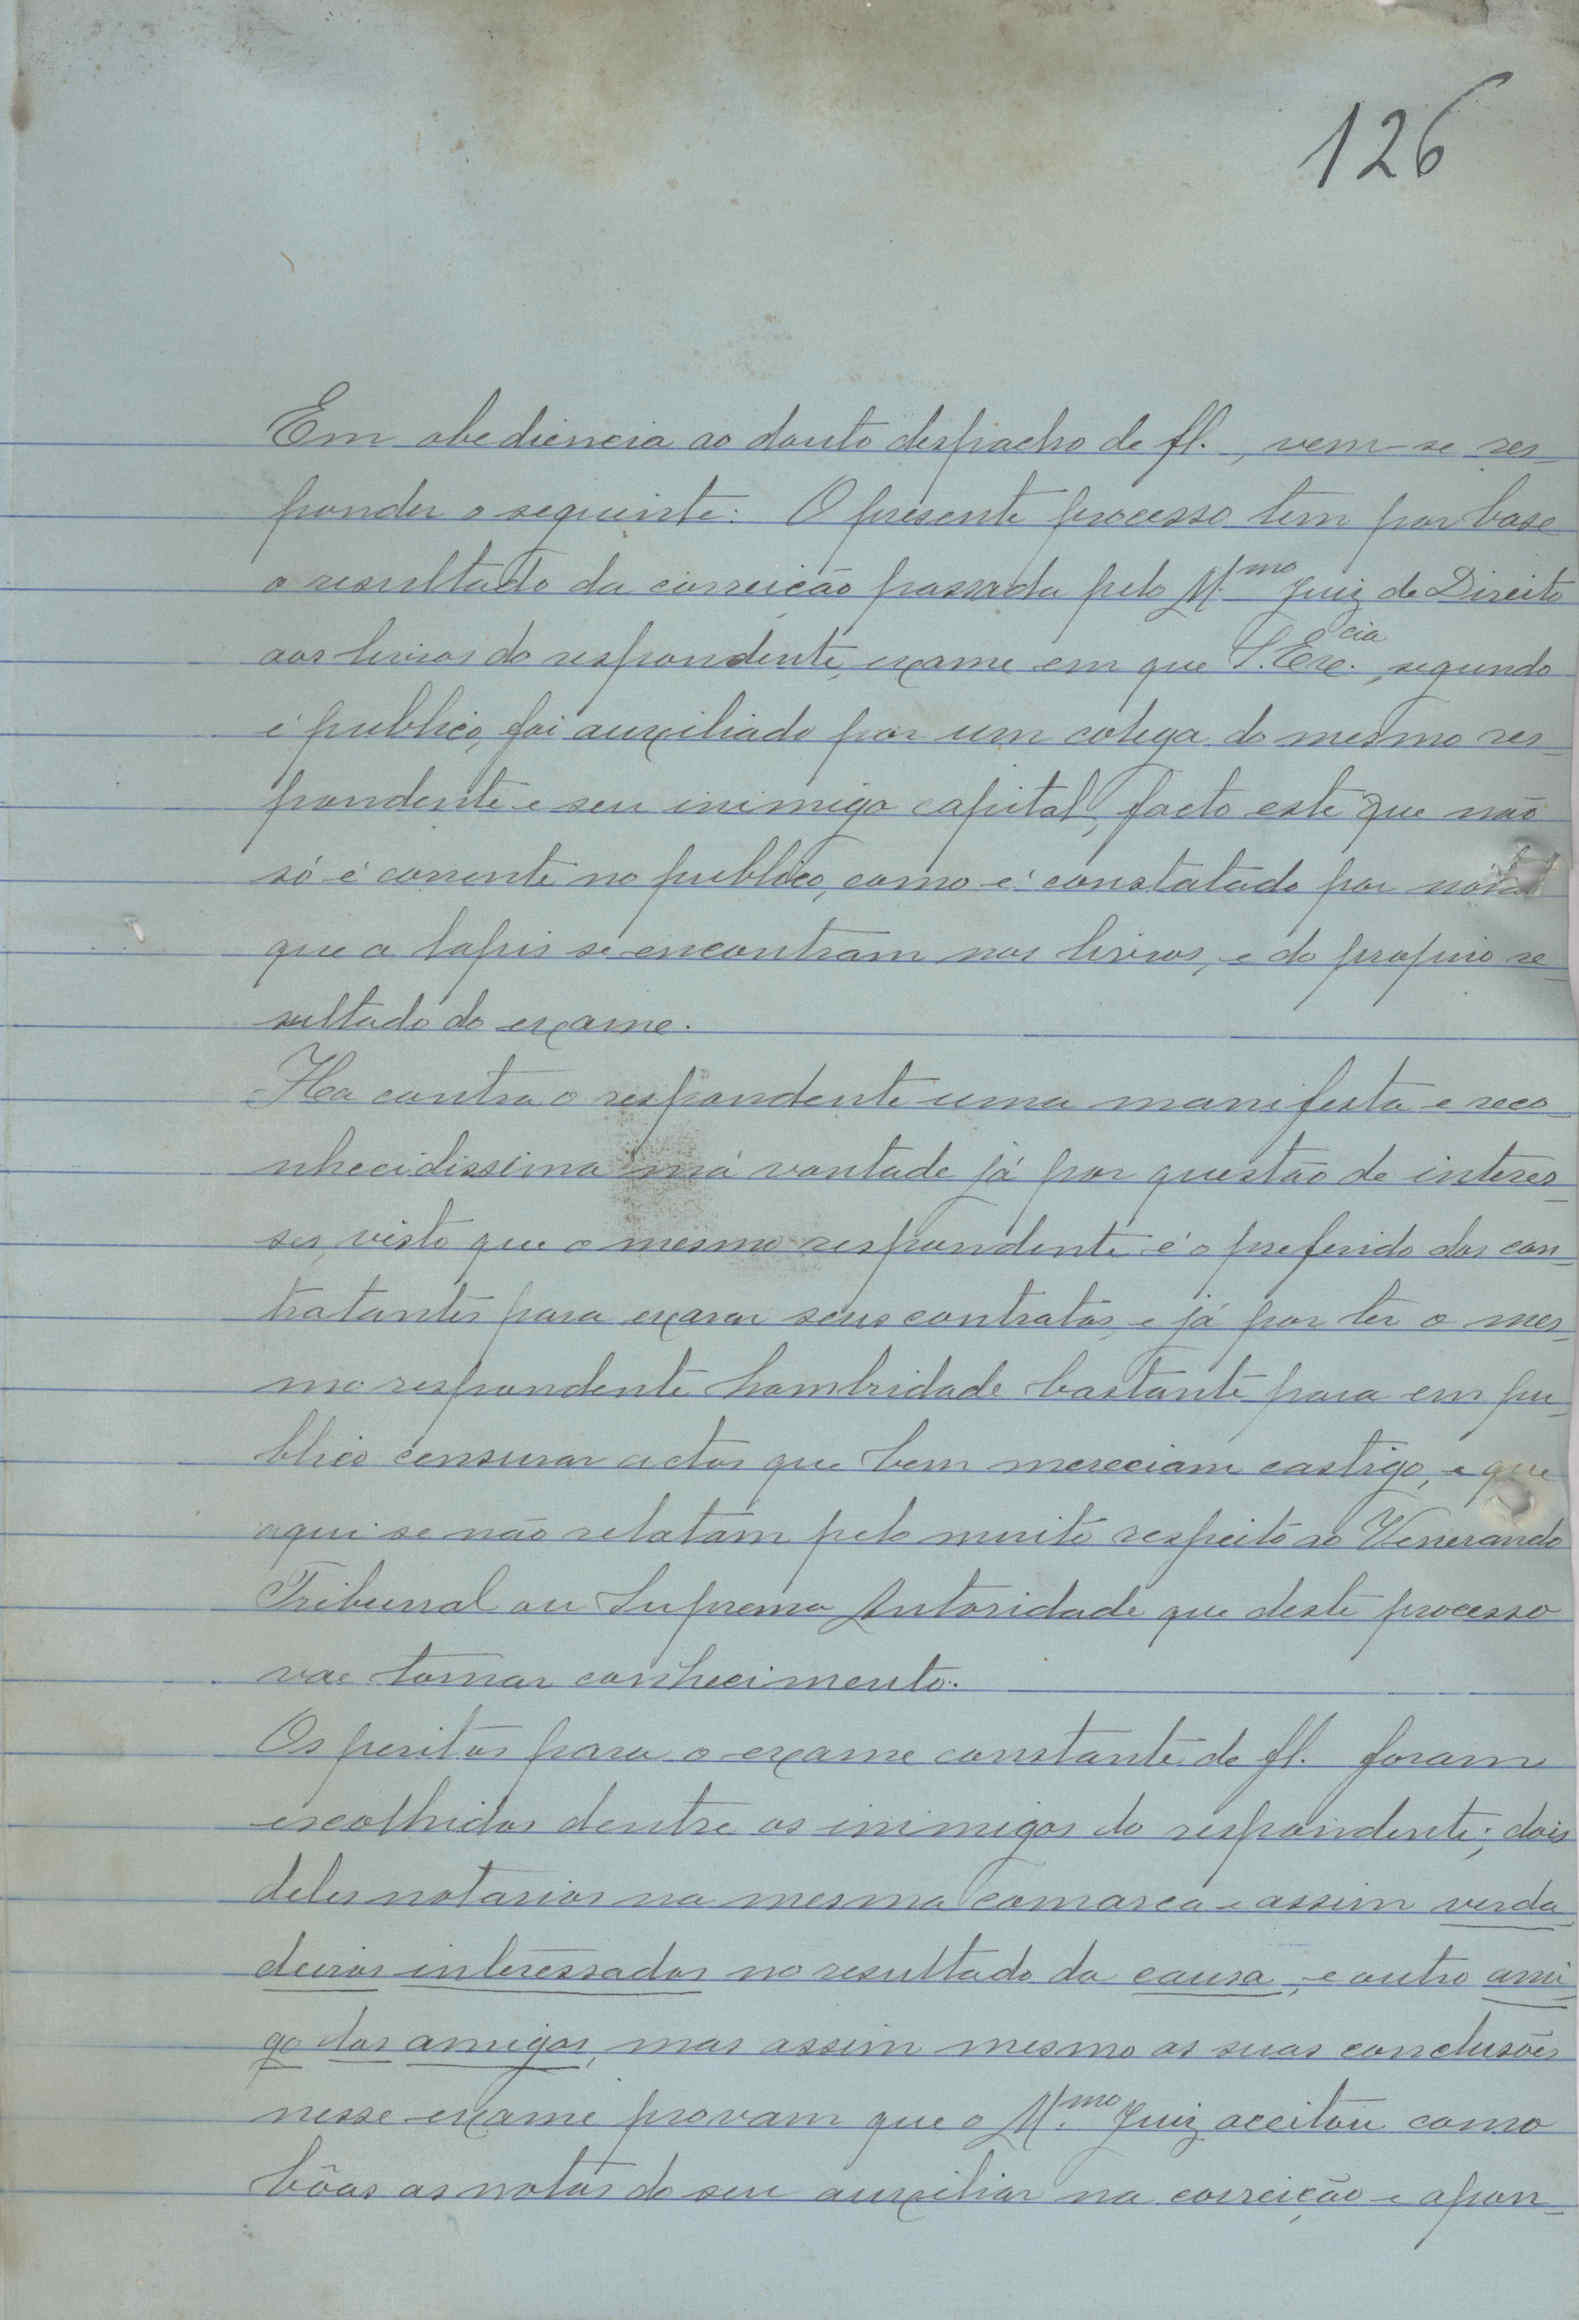 126
Em obediencia ao douto despacho de fl. , vem-se res-
ponder o seguinte: O presente processo tem por base
o resultado da correição passada pelo M.mo Juiz de Direito
aos livros do respondente, exame em que S. Exc.cia, segundo
é publico, foi auxiliado por um colega do mesmo res-
pondente e seu inimigo capital, facto este que não
só é corrente no publico, como é constatado por notas
que a lapis se encontram nos livros, e do proprio re-
sultado do exame.
Ha contra o respondente uma manifesta e reco-
nhecidissima má vontade já por questão de interes-
ses, visto que o mesmo respondente é o preferido dos con-
tratantes para exarar seus contratos, e já por ter o mes-
mo respondente hombridade bastante para em pu-
blico censurar actos que bem mereciam castigo, e que
aqui se não relatam pelo muito respeito ao Venerando
Tribunal ou Suprema Autoridade que deste processo
vae tomar conhecimento.
Os peritos para o exame constante de fl. foram
escolhidos dentre os inimigos do respondente; dois
deles notarios na mesma comarca e assim verda-
deiros interessados no resultado da causa, e outro ami-
go dos amigos, mas assim mesmo as suas conclusões
nesse exame provam que o M.mo Juiz aceitou como
bôas as notas do seu auxiliar na correição e apon-